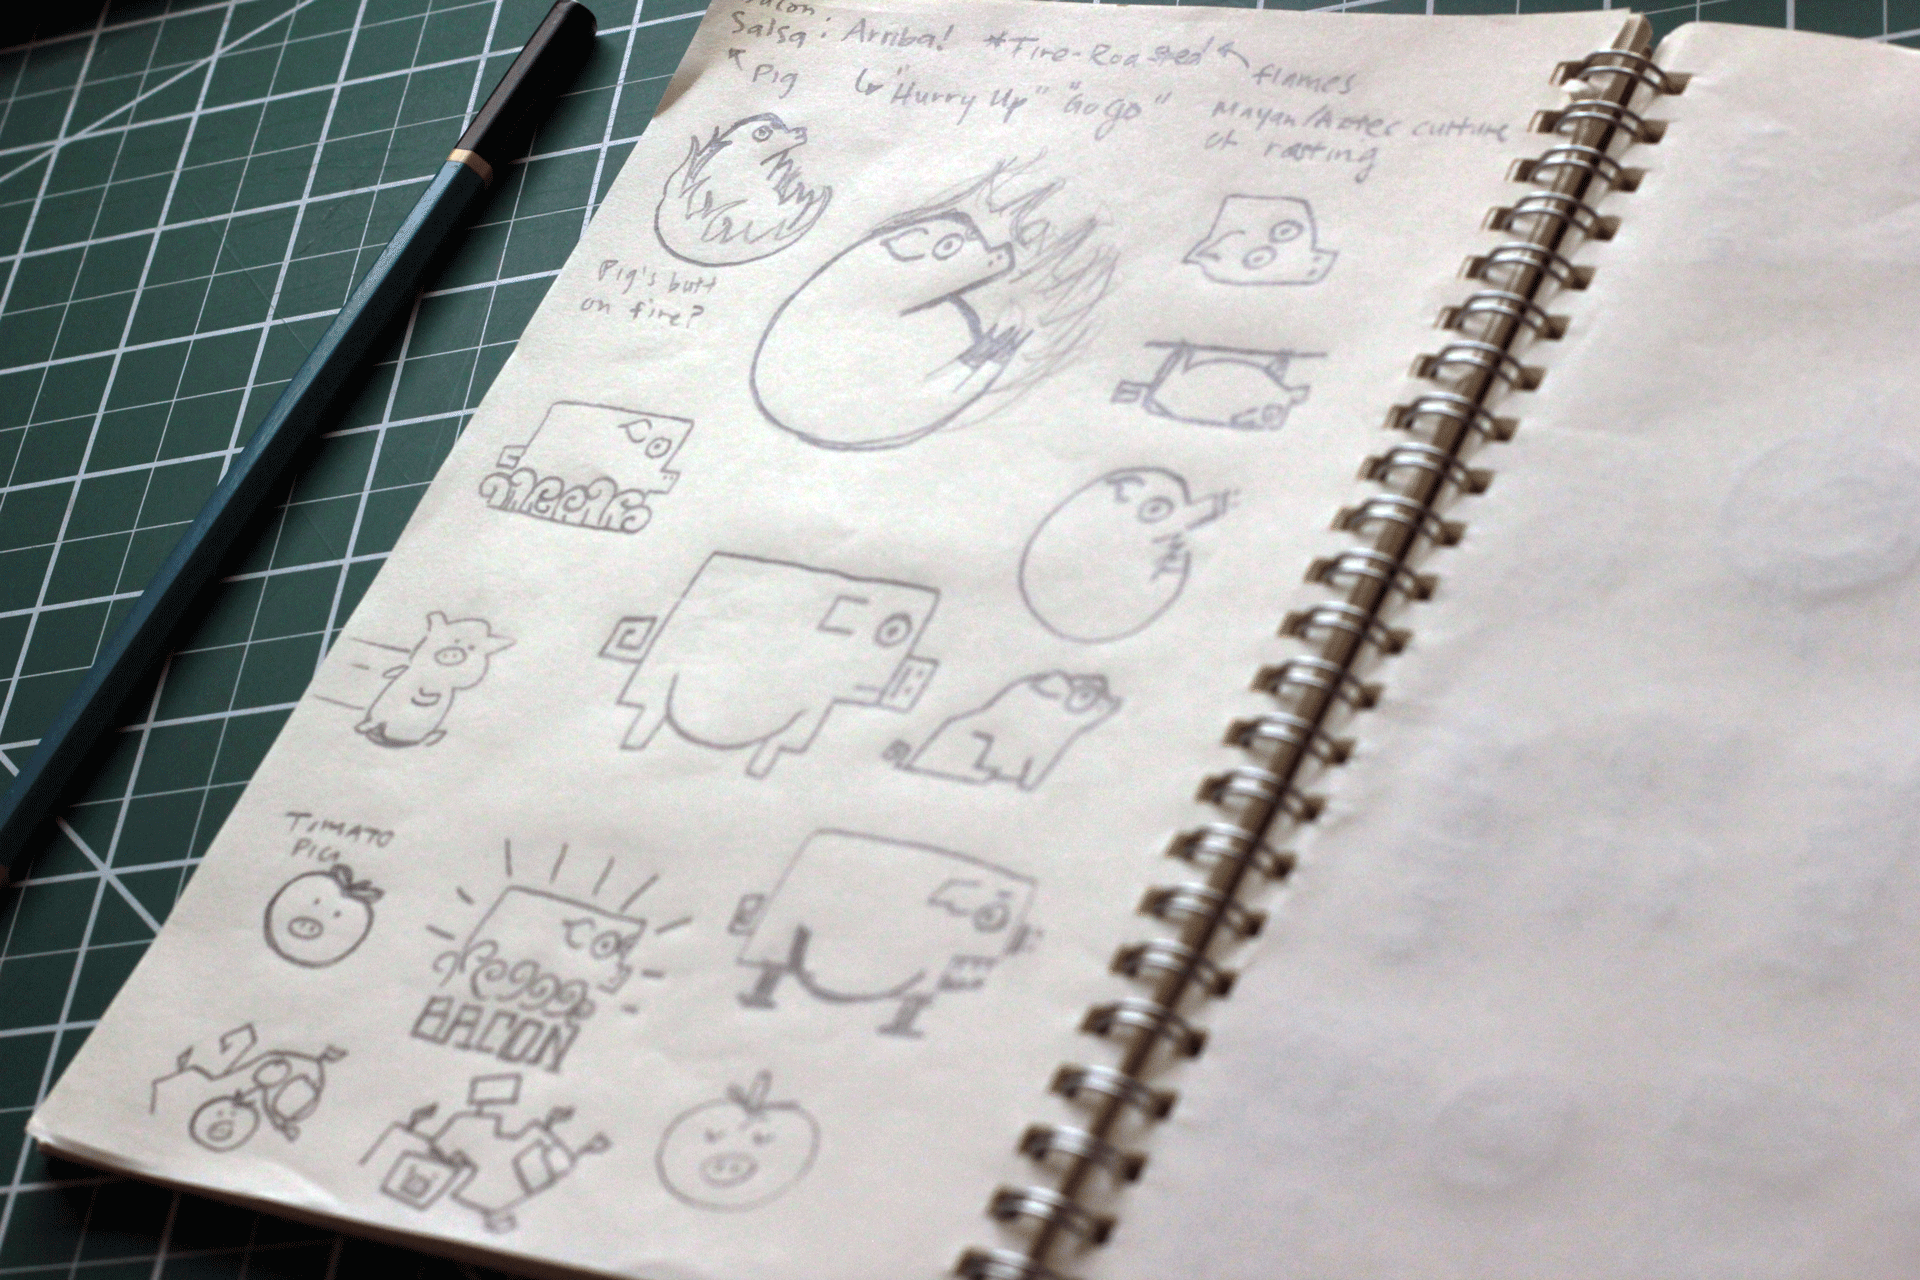 Bacon:
Salsa: Arriba! *Fire-Roasted
Pig
flames
"Hurry Up" "Go go"
Mayan/Aztec culture
of rasting
Pig's butt
on fire?
TOMATO
PIG
BACON